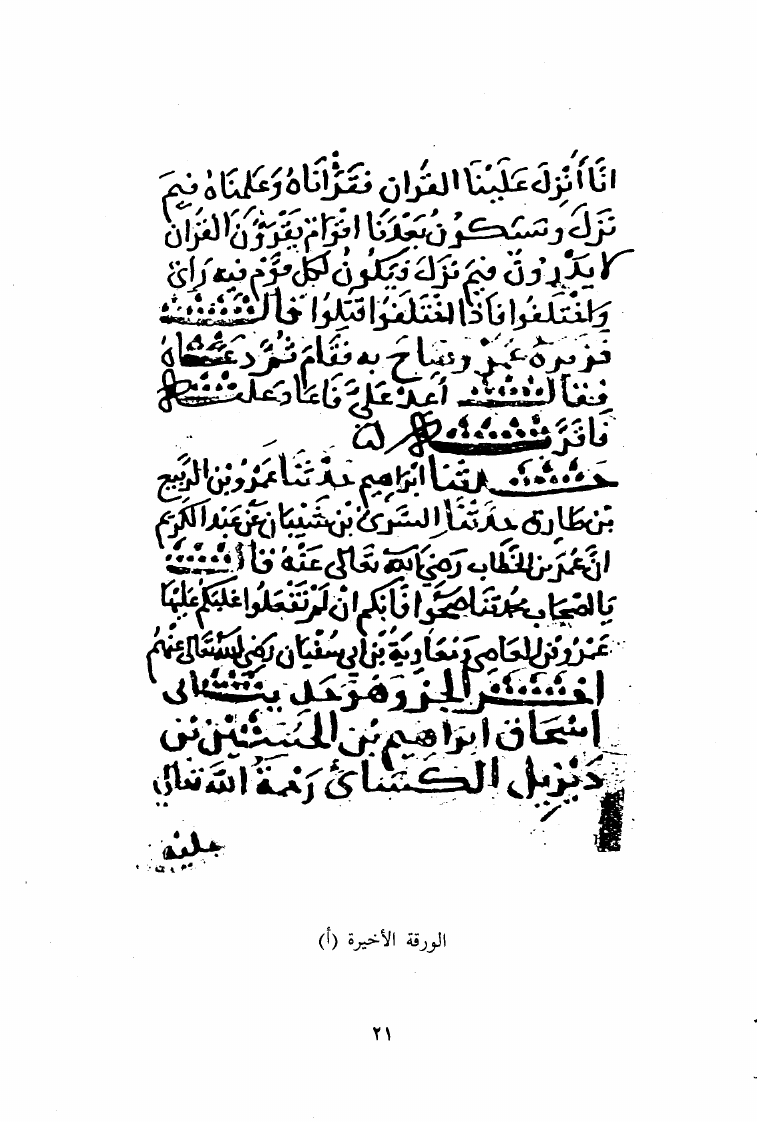 انّا أُنْزِلَ عَلَيْنَا القُرآن فَقَرَأْنَاهُ وَعَلِمْنَاهُ فِيمَ
نَزَلَ وسَيَكُونُ بَعْدَنَا اقوَامٌ يَقْرَؤُنَ القُرْآنَ
لا يَدْرُونَ فِيمَ نَزَلَ وَيَكُونُ لِكُلِّ قَوْمٍ فِيهِ رَأيٌ
وَاخْتَلَفُوا فَاذا اخْتَلَفُوا قتِلُوا قال
فزبرهُ عُمَرُ وصَاحَ بِهِ فَقَامَ ثُمَّ دَعَاهُ
فقال أعِدْ عَلَيَّ فَاعَادَ عليه
فَاقرَّ به
حدثنا ابْرَاهِيم حدثنا عَمْرُو بن الرَّبيع
بن طَارِق حدثنا السَّرِيُّ بن شَيْبَان عَنْ عَبْد الكَرِيم
انَّ عُمَرَ بن الخَطَّابِ رَضِيَ اللهُ تَعَالَى عَنْهُ قال
يا اصْحَابَ محمد تَنَاصَحُوا فَانّكُم انْ لَمْ تَفْعَلُوا غَلَبَكُم عَلَيْهَا
عَمْرُو بن العَاصِ وَمُعَاوِيَةُ بْنُ ابي سُفْيَان رَضِيَ الله تَعَالَى عَنْهُم
اخر الجزء وهُوَ حَدِيث ابي
اسْحَاق ابْرَاهِيم بْنِ الحُسَيْن بْن
دَيْزِيل الكِسَائيّ رَحْمَةُ اللهِ تَعَالَى
عليه
الورقة الأخيرة (أ)
٢١